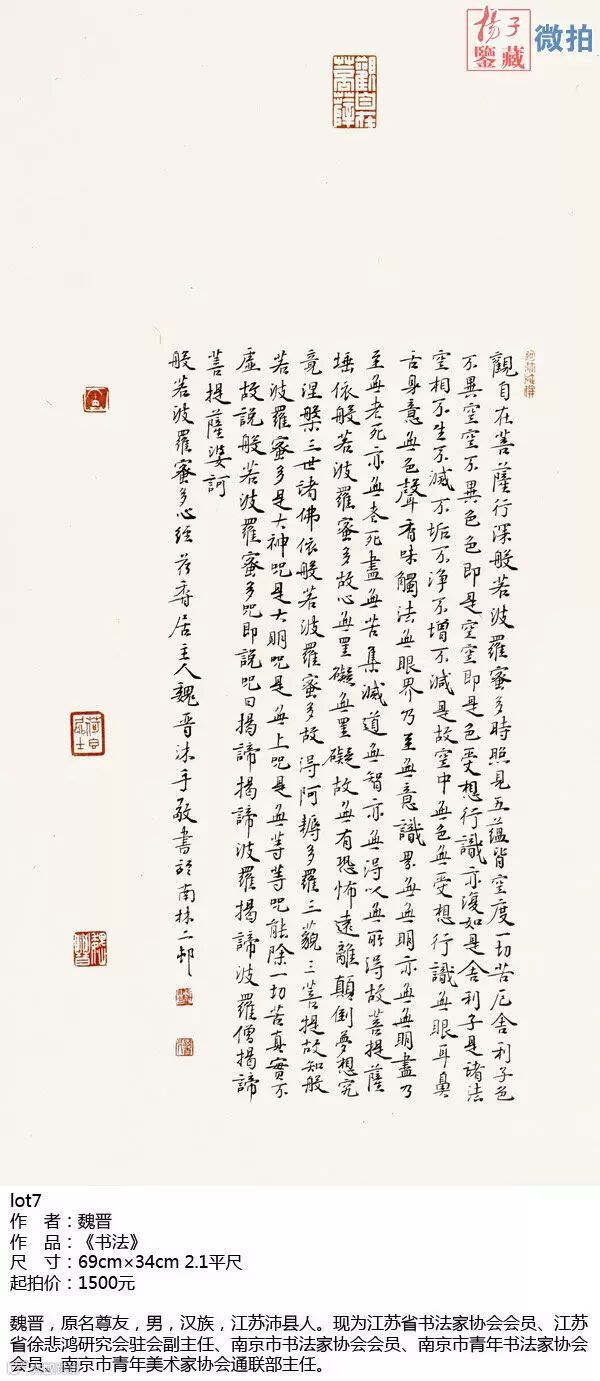 揚子
鑒藏
微拍
觀自在
菩薩
觀自在菩薩行深般若波羅蜜多時照見五蘊皆空度一切苦厄舍利子色
不異空空不異色色即是空空即是色受想行識亦復如是舍利子是諸法
空相不生不滅不垢不淨不增不減是故空中無色無受想行識無眼耳鼻
舌身意無色聲香味觸法無眼界乃至無意識界無無明亦無無明盡乃
至無老死亦無老死盡無苦集滅道無智亦無得以無所得故菩提薩
埵依般若波羅蜜多故心無罣礙無罣礙故無有恐怖遠離顛倒夢想究
竟涅槃三世諸佛依般若波羅蜜多故得阿耨多羅三藐三菩提故知般
若波羅蜜多是大神咒是大明咒是無上咒是無等等咒能除一切苦真實不
虛故說般若波羅蜜多咒即說咒曰揭諦揭諦波羅揭諦波羅僧揭諦
菩提薩婆訶
般若波羅蜜多心經 居主人魏晋沐手敬書於南林二邨
魏晉
lot7
作 者：魏晋
作 品：《书法》
尺 寸：69cm×34cm 2.1平尺
起拍价：1500元
魏晋，原名尊友，男，汉族，江苏沛县人。现为江苏省书法家协会会员、江苏
省徐悲鸿研究会驻会副主任、南京市书法家协会会员、南京市青年书法家协会
会员、南京市青年美术家协会通联部主任。